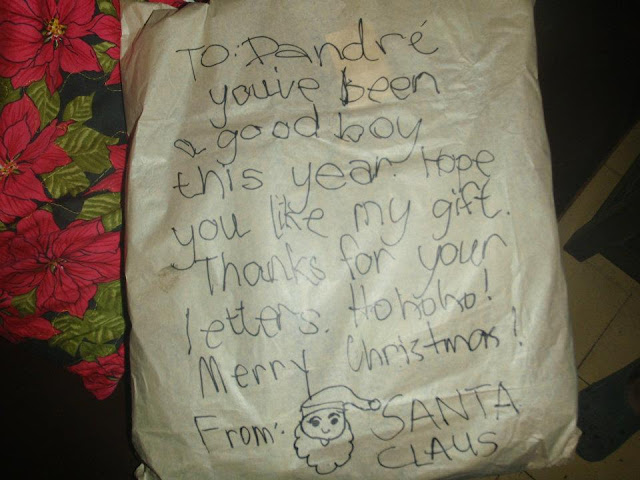 To: Dandré
you've been
a good boy
this year. Hope
you like my gift.
Thanks for your
letters. Hohoho!
Merry Christmas!
From: SANTA
CLAUS